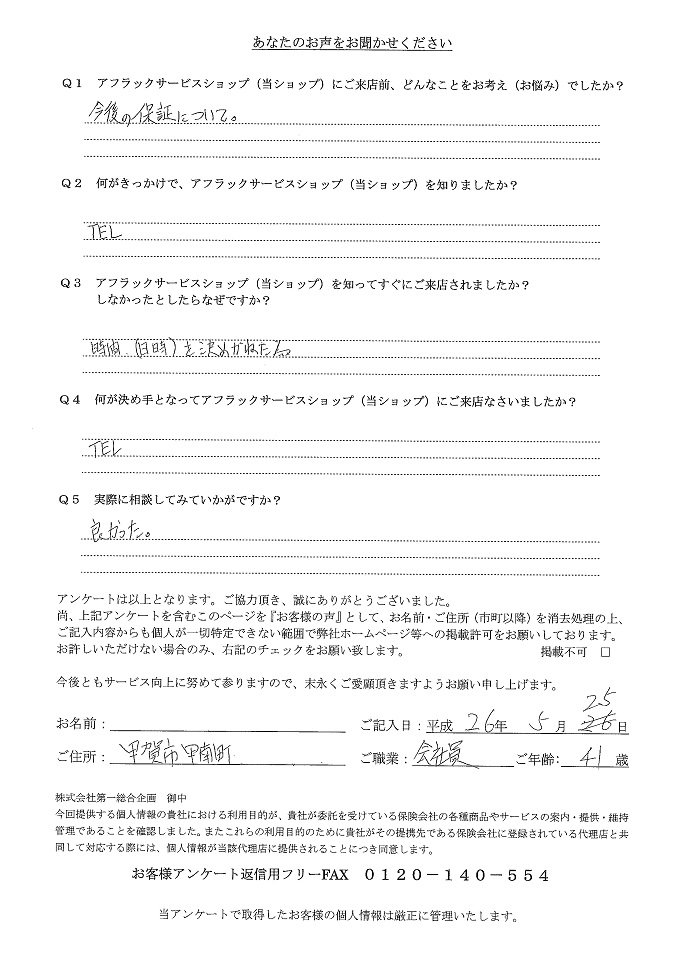 あなたのお声をお聞かせください
Q1 アフラックサービスショップ（当ショップ）にご来店前、どんなことをお考え（お悩み）でしたか？
今後の保証について。
Q2 何がきっかけで、アフラックサービスショップ（当ショップ）を知りましたか？
TEL
Q3 アフラックサービスショップ（当ショップ）を知ってすぐにご来店されましたか？
しなかったとしたらなぜですか？
時間（日時）を決めかねた為
Q4 何が決め手となってアフラックサービスショップ（当ショップ）にご来店なさいましたか？
TEL
Q5 実際に相談してみていかがですか？
良かった。
アンケートは以上となります。ご協力頂き、誠にありがとうございました。
尚、上記アンケートを含むこのページを『お客様の声』として、お名前・ご住所（市町以降）を消去処理の上、
ご記入内容からも個人が一切特定できない範囲で弊社ホームページ等への掲載許可をお願いしております。
お許しいただけない場合のみ、右記のチェックをお願い致します。 掲載不可 □
今後ともサービス向上に努めて参りますので、末永くご愛顧頂きますようお願い申し上げます。
25
お名前： ご記入日：平成 26年 5月 26日
ご住所： 甲賀市甲南町 ご職業：会社員 ご年齢： 41 歳
株式会社第一総合企画 御中
今回提供する個人情報の貴社における利用目的が、貴社が委託を受けている保険会社の各種商品やサービスの案内・提供・維持
管理であることを確認しました。またこれらの利用目的のために貴社がその提携先である保険会社に登録されている代理店と共
同して対応する際には、個人情報が当該代理店に提供されることにつき同意します。
お客様アンケート返信用フリーFAX ０１２０－１４０－５５４
当アンケートで取得したお客様の個人情報は厳正に管理いたします。